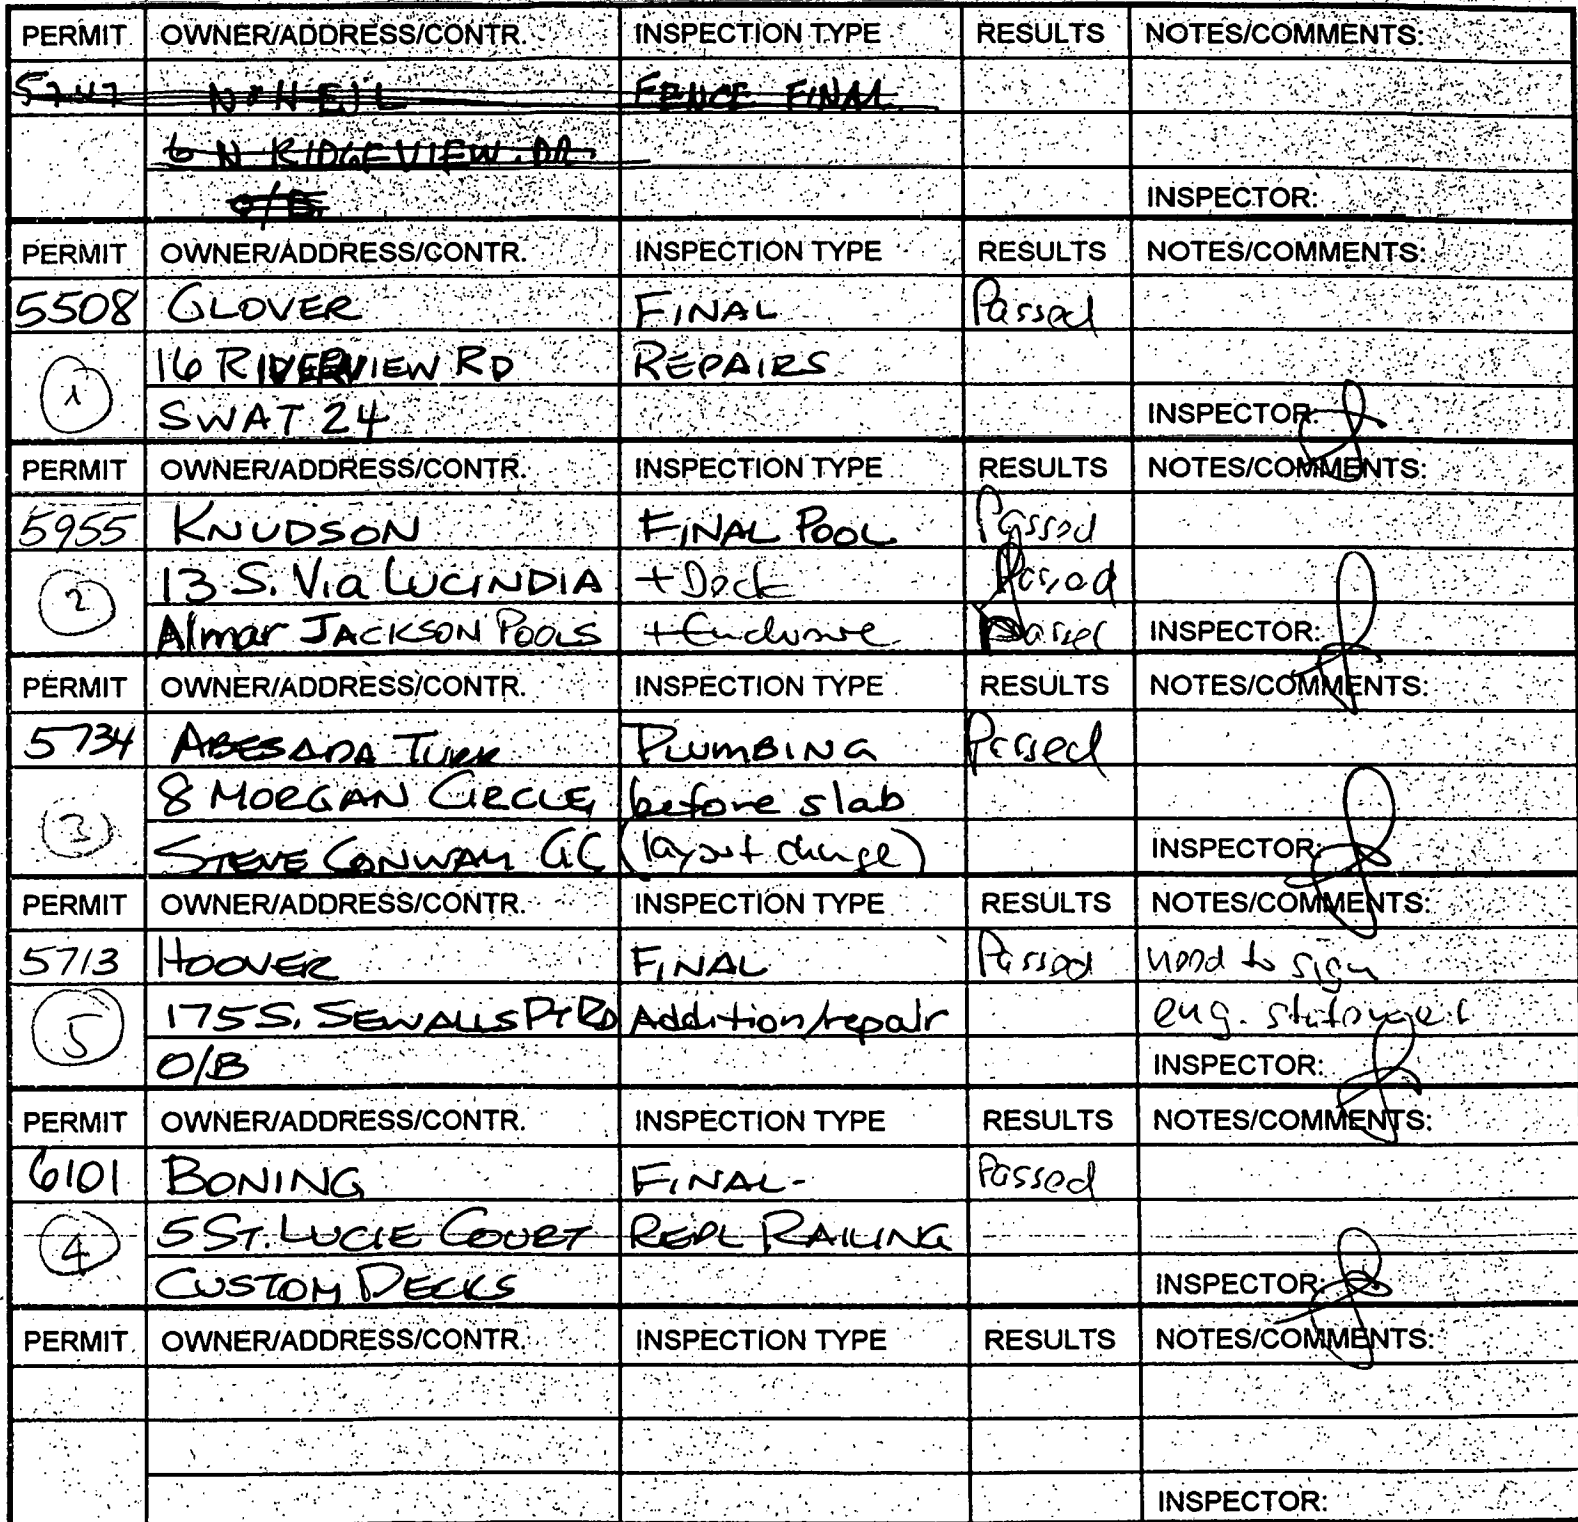 PERMIT OWNER/ADDRESS/CONTR. INSPECTION TYPE RESULTS NOTES/COMMENTS:
5747 FENCE FINAL
6 N RIDGEVIEW DR
O/B INSPECTOR:
PERMIT OWNER/ADDRESS/CONTR. INSPECTION TYPE RESULTS NOTES/COMMENTS:
5508 GLOVER FINAL Passed
1 16 RIVERVIEW RD REPAIRS
SWAT 24 INSPECTOR:
PERMIT OWNER/ADDRESS/CONTR. INSPECTION TYPE RESULTS NOTES/COMMENTS:
5955 KNUDSON FINAL POOL Passed
2 13 S. Via LUCINDIA + Deck Passed
Almar JACKSON POOLS + Enclosure Passed INSPECTOR:
PERMIT OWNER/ADDRESS/CONTR. INSPECTION TYPE RESULTS NOTES/COMMENTS:
5734 ABESADA TURK PLUMBING Passed
3 8 MORGAN CIRCLE before slab
STEVE CONWAY GC (layout change) INSPECTOR:
PERMIT OWNER/ADDRESS/CONTR. INSPECTION TYPE RESULTS NOTES/COMMENTS:
5713 HOOVER FINAL Passed need to sign
5 175 S. SEWALLS PT RD Addition/repair eng. statement
O/B INSPECTOR:
PERMIT OWNER/ADDRESS/CONTR. INSPECTION TYPE RESULTS NOTES/COMMENTS:
6101 BONING FINAL- Passed
4 5 ST. LUCIE COURT REPL RAILING
CUSTOM DECKS INSPECTOR:
PERMIT OWNER/ADDRESS/CONTR. INSPECTION TYPE RESULTS NOTES/COMMENTS:
INSPECTOR: